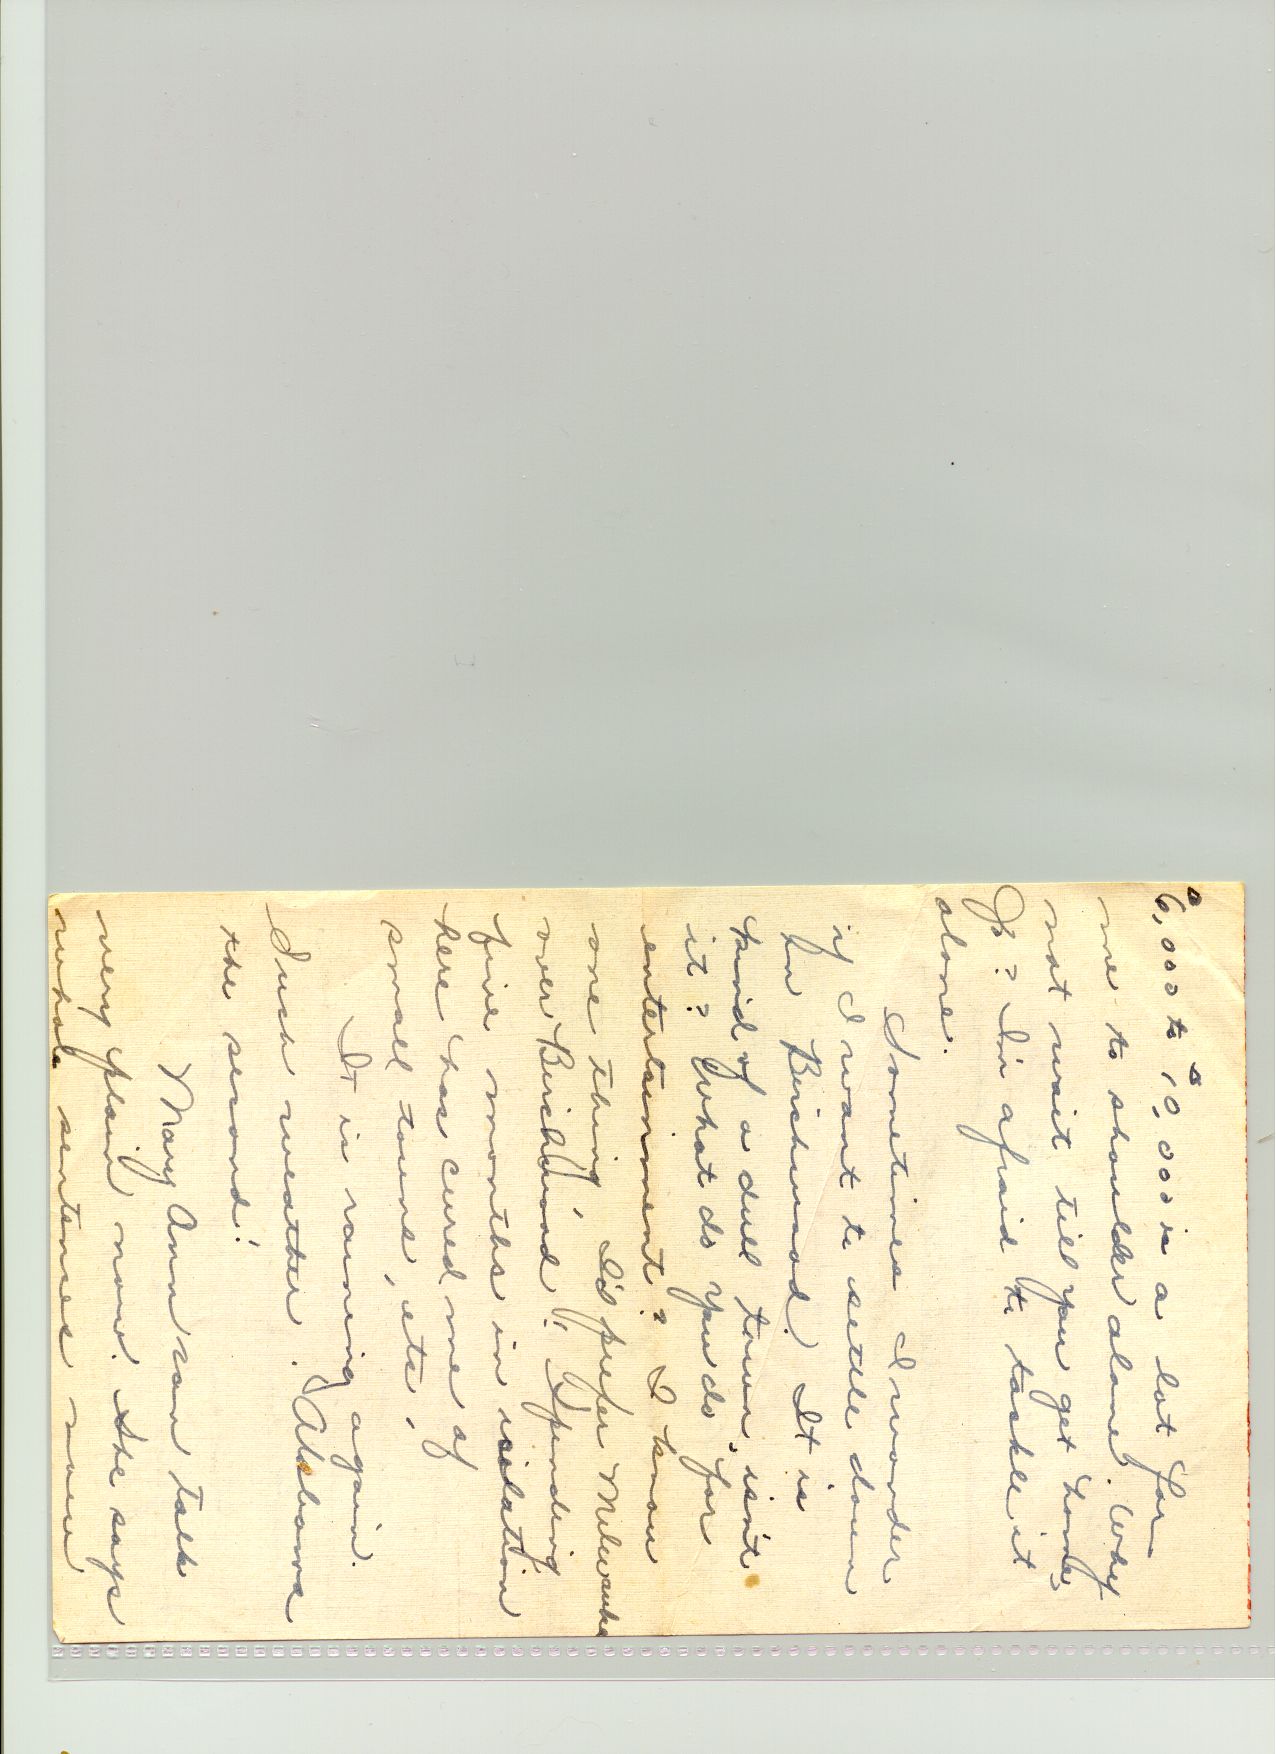 6,000 to 10,000 is a lot for
me to shoulder alone. Why
not wait till you get home,
Jo? I'm afraid to tackle it
alone.
Sometimes I wonder
if I want to settle down
in Birchwood. It is
kind of a dull town, isn't
it? What do you do for
entertainment? I know
one thing, I'd prefer Milwaukee
over Birchwood! Spending
five months in isolation
here has cured me of
small towns, etc.
It is raining again.
Such weather. Alabama
the second!
Mary Ann can talk
very plain now. She says
whole sentences now